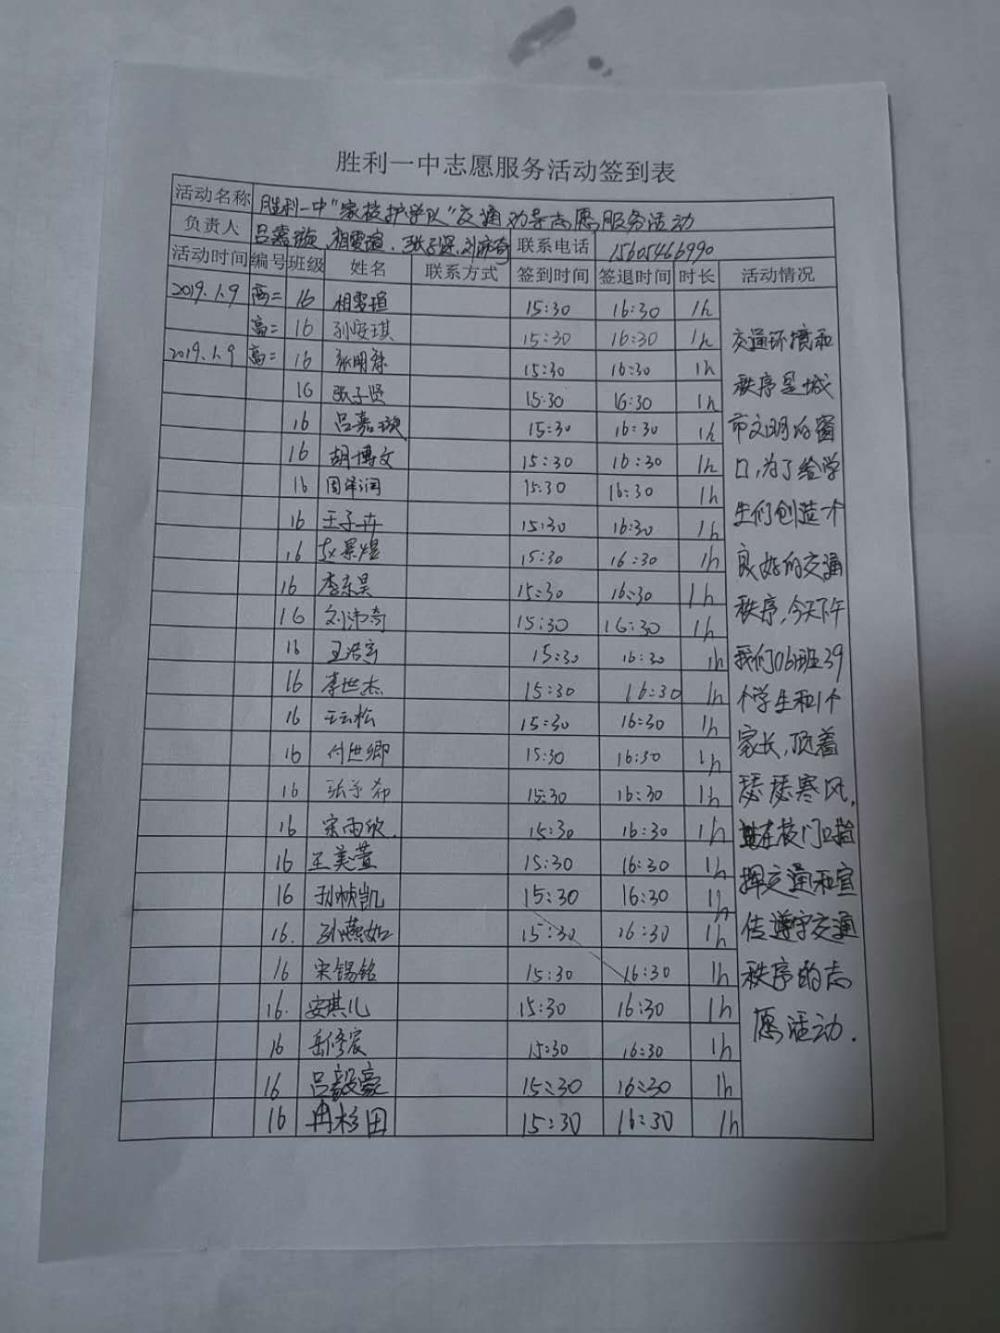 胜利一中志愿服务活动签到表
活动名称 胜利一中"家校护学队"交通劝导志愿服务活动
负责人 吕嘉璇、相雯瑄、张子贤、刘沛奇 联系电话 15605466990
活动时间 编号 班级 姓名 联系方式 签到时间 签退时间 时长 活动情况
2019.1.9 高二 16 相雯瑄 15:30 16:30 1h
高二 16 孙 琪 15:30 16:30 1h
2019.1.9 高二 16 张明 15:30 16:30 1h
16 张子贤 15:30 16:30 1h
16 吕嘉璇 15:30 16:30 1h
16 胡博文 15:30 16:30 1h
16 周泽润 15:30 16:30 1h
16 王子卉 15:30 16:30 1h
16 赵景煜 15:30 16:30 1h
16 李东昊 15:30 16:30 1h
16 刘沛奇 15:30 16:30 1h
16 王浩宇 15:30 16:30 1h
16 李世杰 15:30 16:30 1h
16 王云松 15:30 16:30 1h
16 付世卿 15:30 16:30 1h
16 张予希 15:30 16:30 1h
16 宋雨欣 15:30 16:30 1h
16 王美萱 15:30 16:30 1h
16 孙帧凯 15:30 16:30 1h
16. 孙燕如 15:30 16:30 1h
16 宋锡铭 15:30 16:30 1h
16. 安琪儿 15:30 16:30 1h
16 岳修宸 15:30 16:30 1h
16 吕毅豪 15:30 16:30 1h
16 冉杉田 15:30 16:30 1h
交通环境和
秩序是城
市文明的窗
口,为了给学
生们创造一个
良好的交通
秩序,今天下午
我们06班39
个学生和1个
家长,顶着
瑟瑟寒风,
站在校门口指
挥交通和宣
传遵守交通
秩序的志
愿活动.